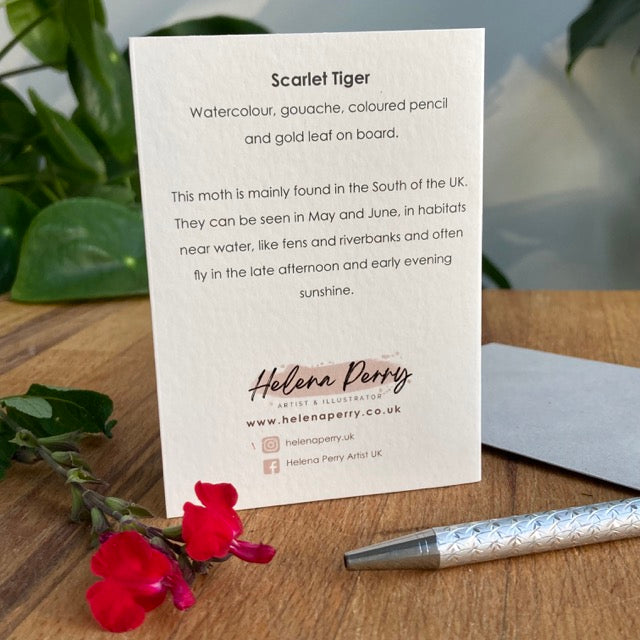 Scarlet Tiger
Watercolour, gouache, coloured pencil
and gold leaf on board.
This moth is mainly found in the South of the UK.
They can be seen in May and June, in habitats
near water, like fens and riverbanks and often
fly in the late afternoon and early evening
sunshine.
Helena Perry
ARTIST & ILLUSTRATOR
www.helenaperry.co.uk
helenaperry.uk
Helena Perry Artist UK